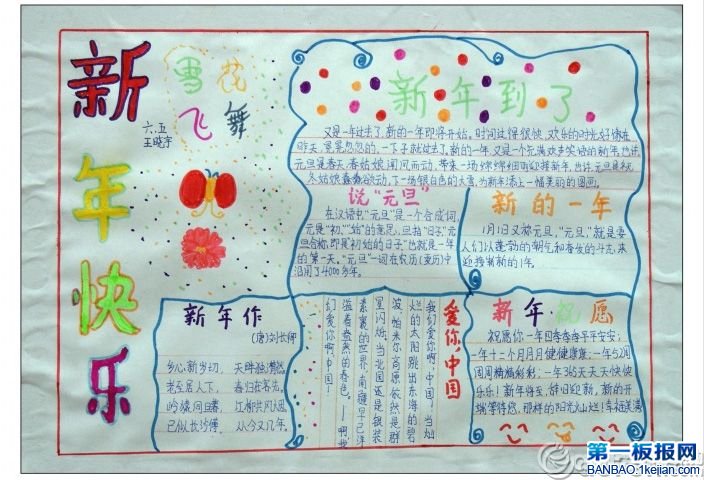 新年快乐
雪花
飞舞
六.五
王晓宇
新年到了
又是一年过去了,新的一年即将开始。时间过得很快,欢乐的时光好像在
昨天,晃晃忽忽的,一下子就过去了。新的一年,又是一个充满欢声笑语的新年,也许,
元旦是春天,春姑娘闻风而动,带来一场绵绵细雨迎接新年,也许元旦是冬天,
冬姑娘蠢蠢欲动,下一场银白色的大雪,为新年添上一幅美丽的图画。
说“元旦”
在汉语中“元旦”是一个合成词,
元是“初”“始”的意思,旦指“日子”元
旦合称,即是“初始的日子”也就是一年
的第一天。“元旦”一词在农历(夏历)中
沿用了4000多年。
新的一年
1月1日又称元旦,“元旦”就是要
人们以蓬勃的朝气和奋发的斗志来
迎接崭新的1年。
新年作
(唐)刘长卿
乡心新岁切,天畔独潸然。
老至居人下,春归在客先。
岭猿同旦暮,江柳共风烟。
已似长沙傅,从今又几年。
爱你,中国
我们爱你啊,中国!当灿
烂的太阳跳出东海的碧
波,帕米尔高原依然是群
星闪烁。当北国还是银装
素裹的世界,南疆早已洋
溢着盎然的春色。——啊,我
们爱你啊,中国!
新年·祝愿
祝愿你一年四季季季平平安安;
一年十二个月月月健健康康;一年52周
周周精精彩彩;一年365天天天快快
乐乐!新年将至,辞旧迎新,新的开
端等待您,那样的阳光灿烂!幸福美满
第一板报网
BANBAO.1kejian.com